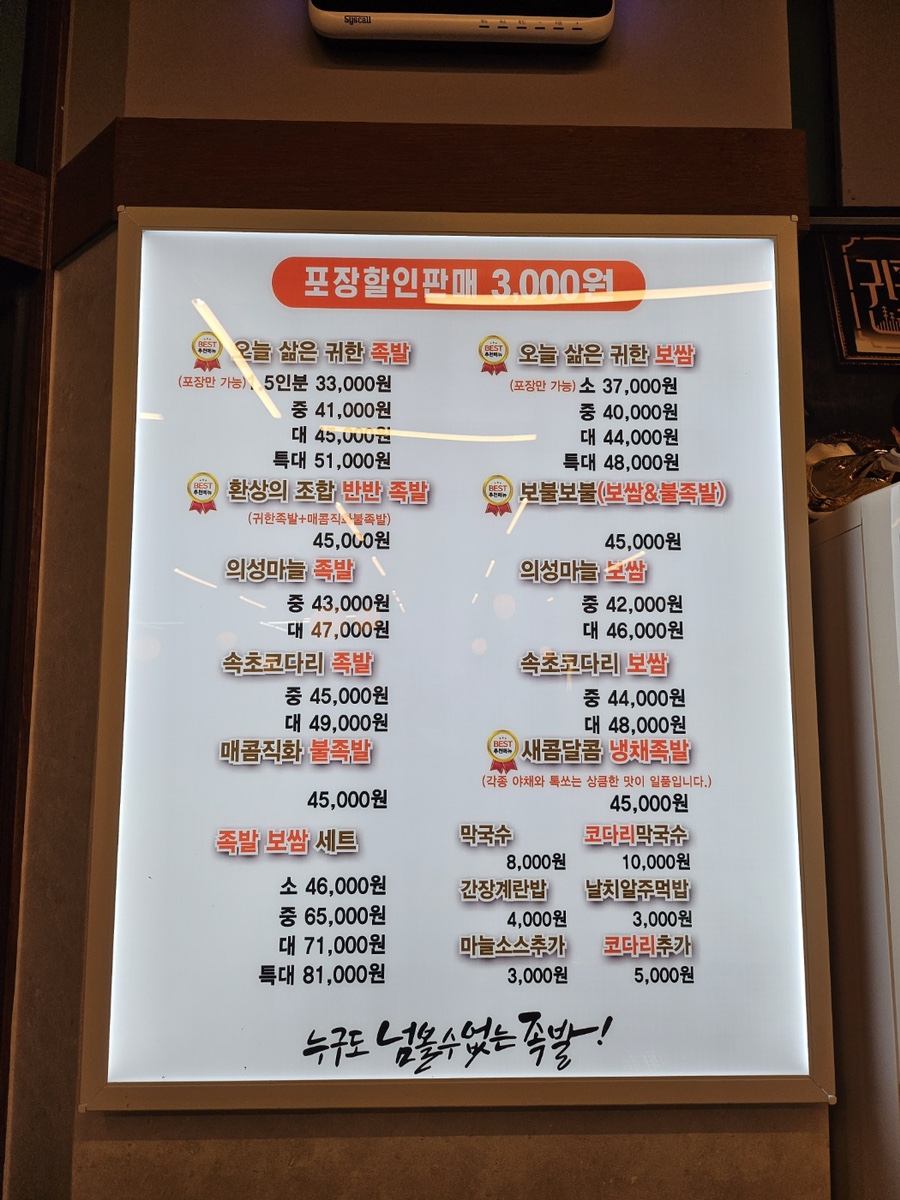 Syscall
포장할인판매 3,000원
BEST 추천메뉴 오늘 삶은 귀한 족발
(포장만 가능) 1.5인분 33,000원
중 41,000원
대 45,000원
특대 51,000원
BEST 추천메뉴 환상의 조합 반반 족발
(귀한족발+매콤직화불족발)
45,000원
의성마늘 족발
중 43,000원
대 47,000원
속초코다리 족발
중 45,000원
대 49,000원
매콤직화 불족발
45,000원
족발 보쌈 세트
소 46,000원
중 65,000원
대 71,000원
특대 81,000원
BEST 추천메뉴 오늘 삶은 귀한 보쌈
(포장만 가능) 소 37,000원
중 40,000원
대 44,000원
특대 48,000원
BEST 추천메뉴 보불보불(보쌈&불족발)
45,000원
의성마늘 보쌈
중 42,000원
대 46,000원
속초코다리 보쌈
중 44,000원
대 48,000원
BEST 추천메뉴 새콤달콤 냉채족발
(각종 야채와 톡쏘는 상큼한 맛이 일품입니다.)
45,000원
막국수 코다리막국수
8,000원 10,000원
간장계란밥 날치알주먹밥
4,000원 3,000원
마늘소스추가 코다리추가
3,000원 5,000원
누구도 넘볼수없는 족발!